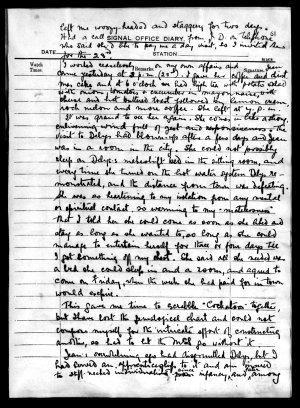 left me woozy-headed and staggery for two days.
Had a call from J. D. on telephone
SIGNAL OFFICE DIARY.
61
She said she'd like to pay me a day visit, so I invited her
for the 23rd.
STATION
Watch
Times.
Remarks
Signature
I worked on my own affairs and Jean
came yesterday at 2 p.m. (23rd). I gave her coffee and dried
cake and at 6 o'clock we had high tea with potato salad
with onion, tomatoes & cucumber & mayonnaise, with
cheese and hot buttered toast followed by lemon cream,
and more coffee. She left at 9 p.m.
It was grand to see her again. She comes in like a strong,
wind of zest and responsiveness; the
visit to Delys had blown up after a few days and Jean
was in a room in the city. She could not possibly
sleep on Delys's makeshift bed in the sitting room, and
every time she turned on the hot water system Delys re-
monstrated, and the distance from town was defeating.
She was so heartening to my isolation from any mental
or spiritual contact, so warming to my
that I told her she could come as soon as she liked and
stay as long as she wanted to, so long as she could
manage to entertain herself for three or four days till
I got something off my chest. She said all she needed was
a bed she could sleep in and a room, and agreed to
come on Friday, when the week she had paid for in town
would expire.
This gave me time to scrabble "Cockatoos" together
but I have lost the genealogical chart and could not
compose myself for the intricate effort of constructing
another, so had to let the MSS go without it.
Jean's overwhelming ego had disgruntled Delys, but I
had served an apprenticeship to it and am inured
to stiff-necked individualists since infancy, and, among